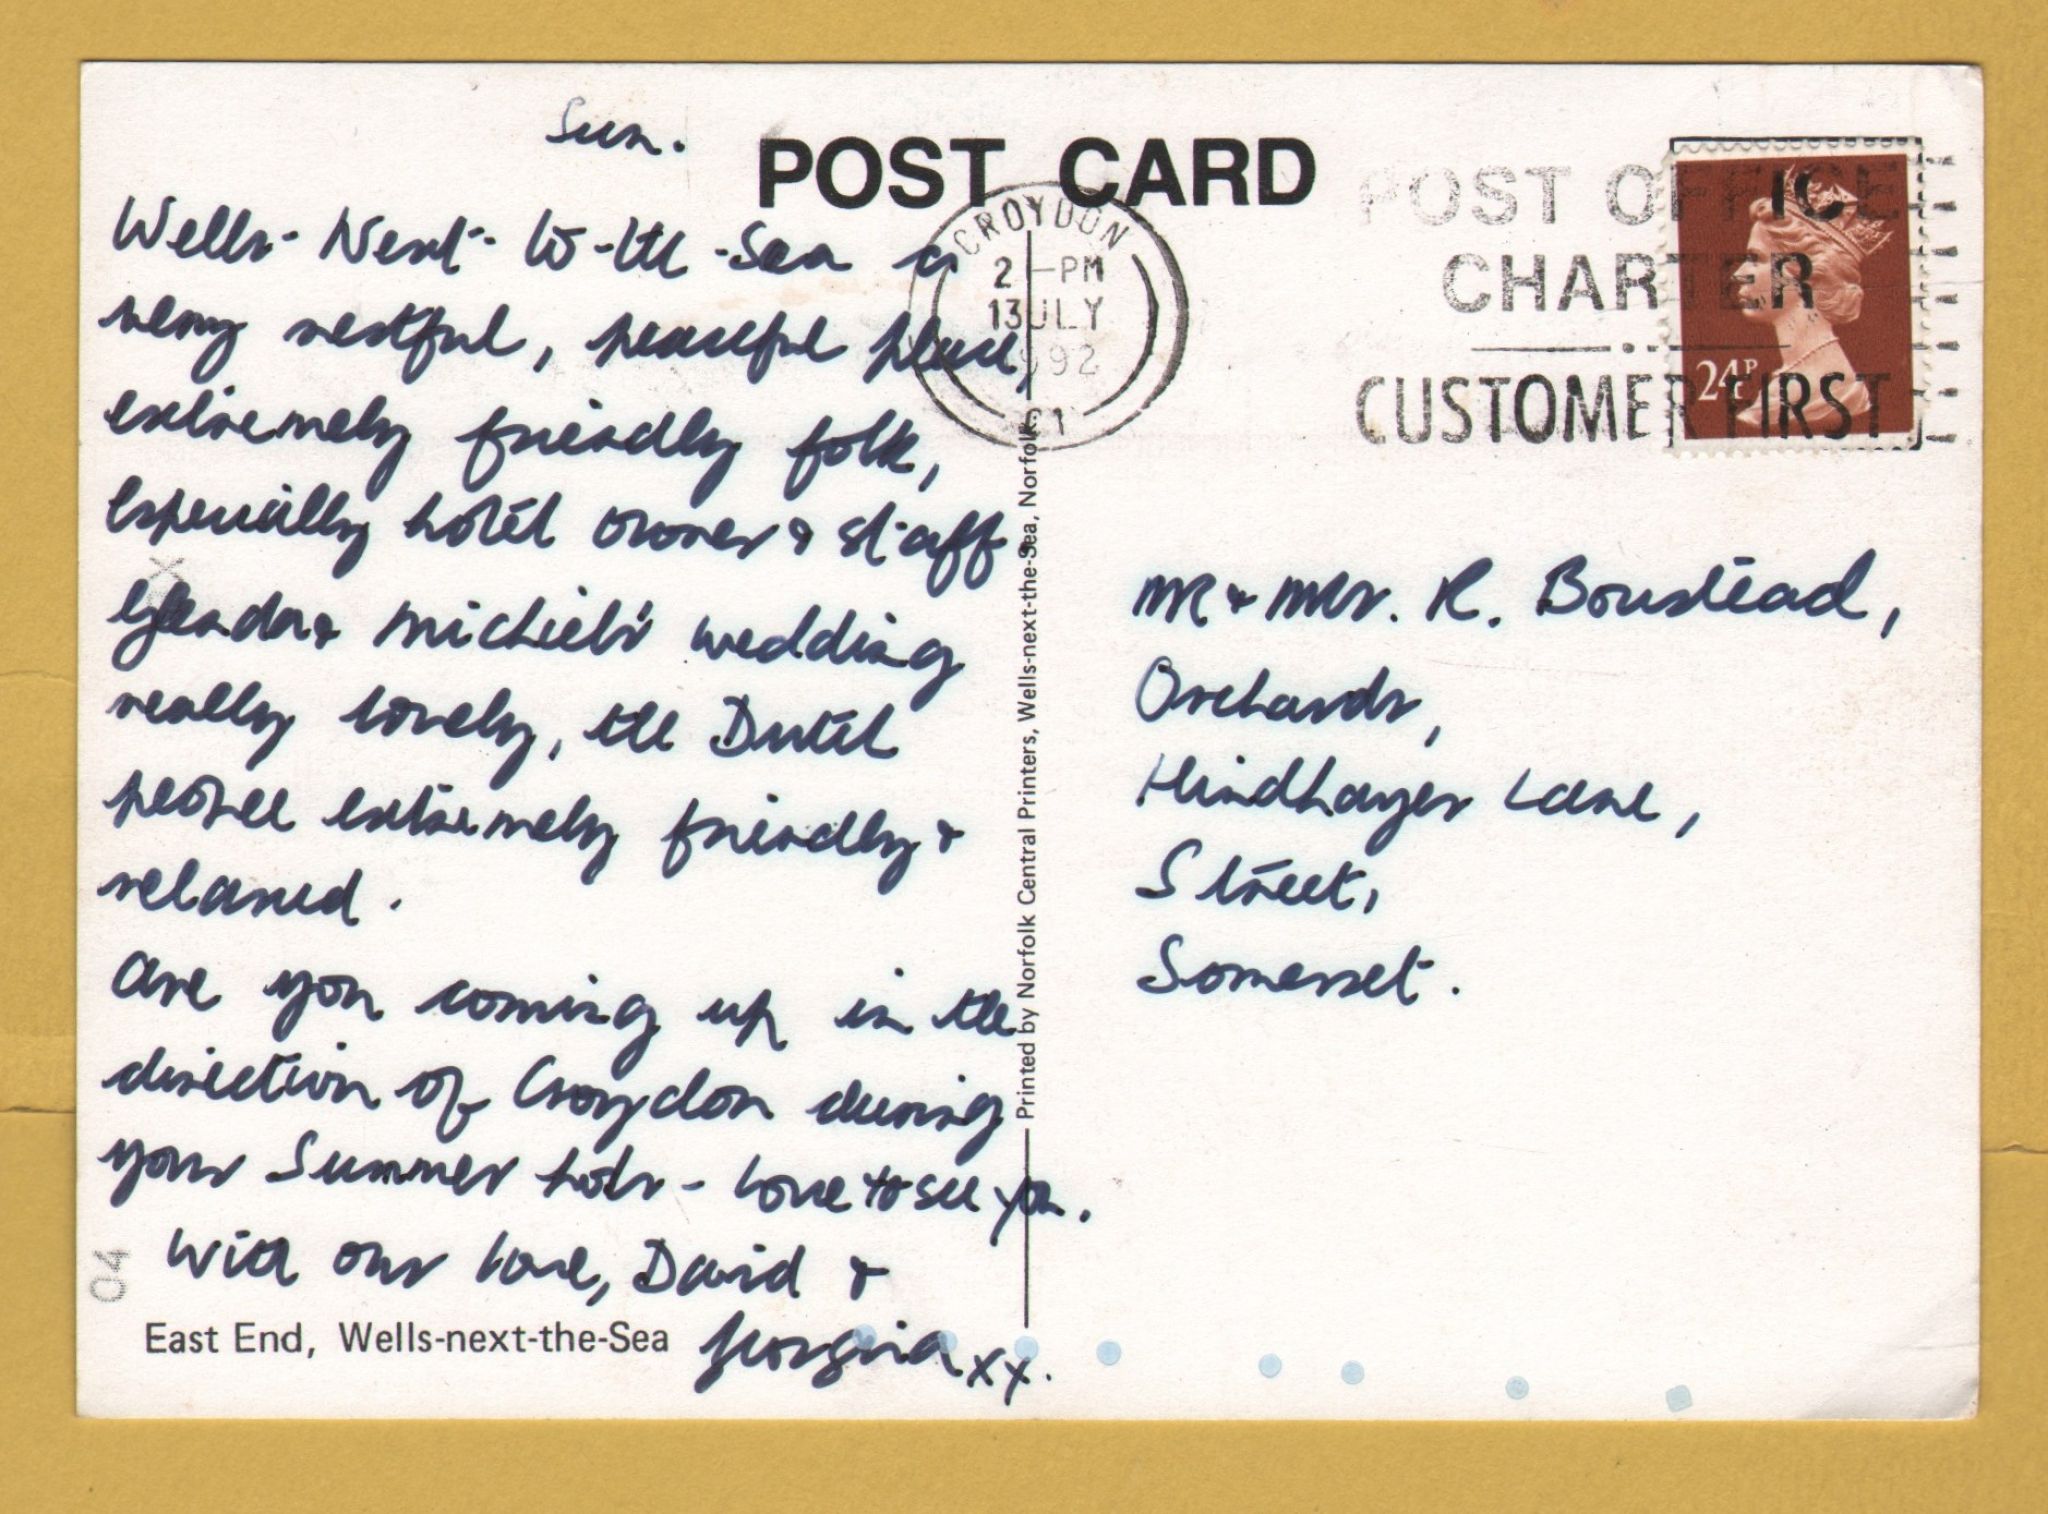 Sun.
Wells-Next-to-the-Sea is
very restful, peaceful place,
extremely friendly folk,
especially hotel owner & staff
Glenda & Michiel's wedding
really lovely, the Dutch
people extremely friendly &
relaxed.
Are you coming up in the
direction of Croydon during
your Summer hols - love to see you.
With our love, David &
Georgina xx.
East End, Wells-next-the-Sea
04
POST CARD
CROYDON
2 -PM
13 JLY
1992
Printed by Norfolk Central Printers, Wells-next-the-Sea, Norfolk
POST OFFICE
CHARTER
CUSTOMER FIRST
24P
Mr & Mrs. R. Boustead,
Orchards,
Hindhayes Lane,
Street,
Somerset.